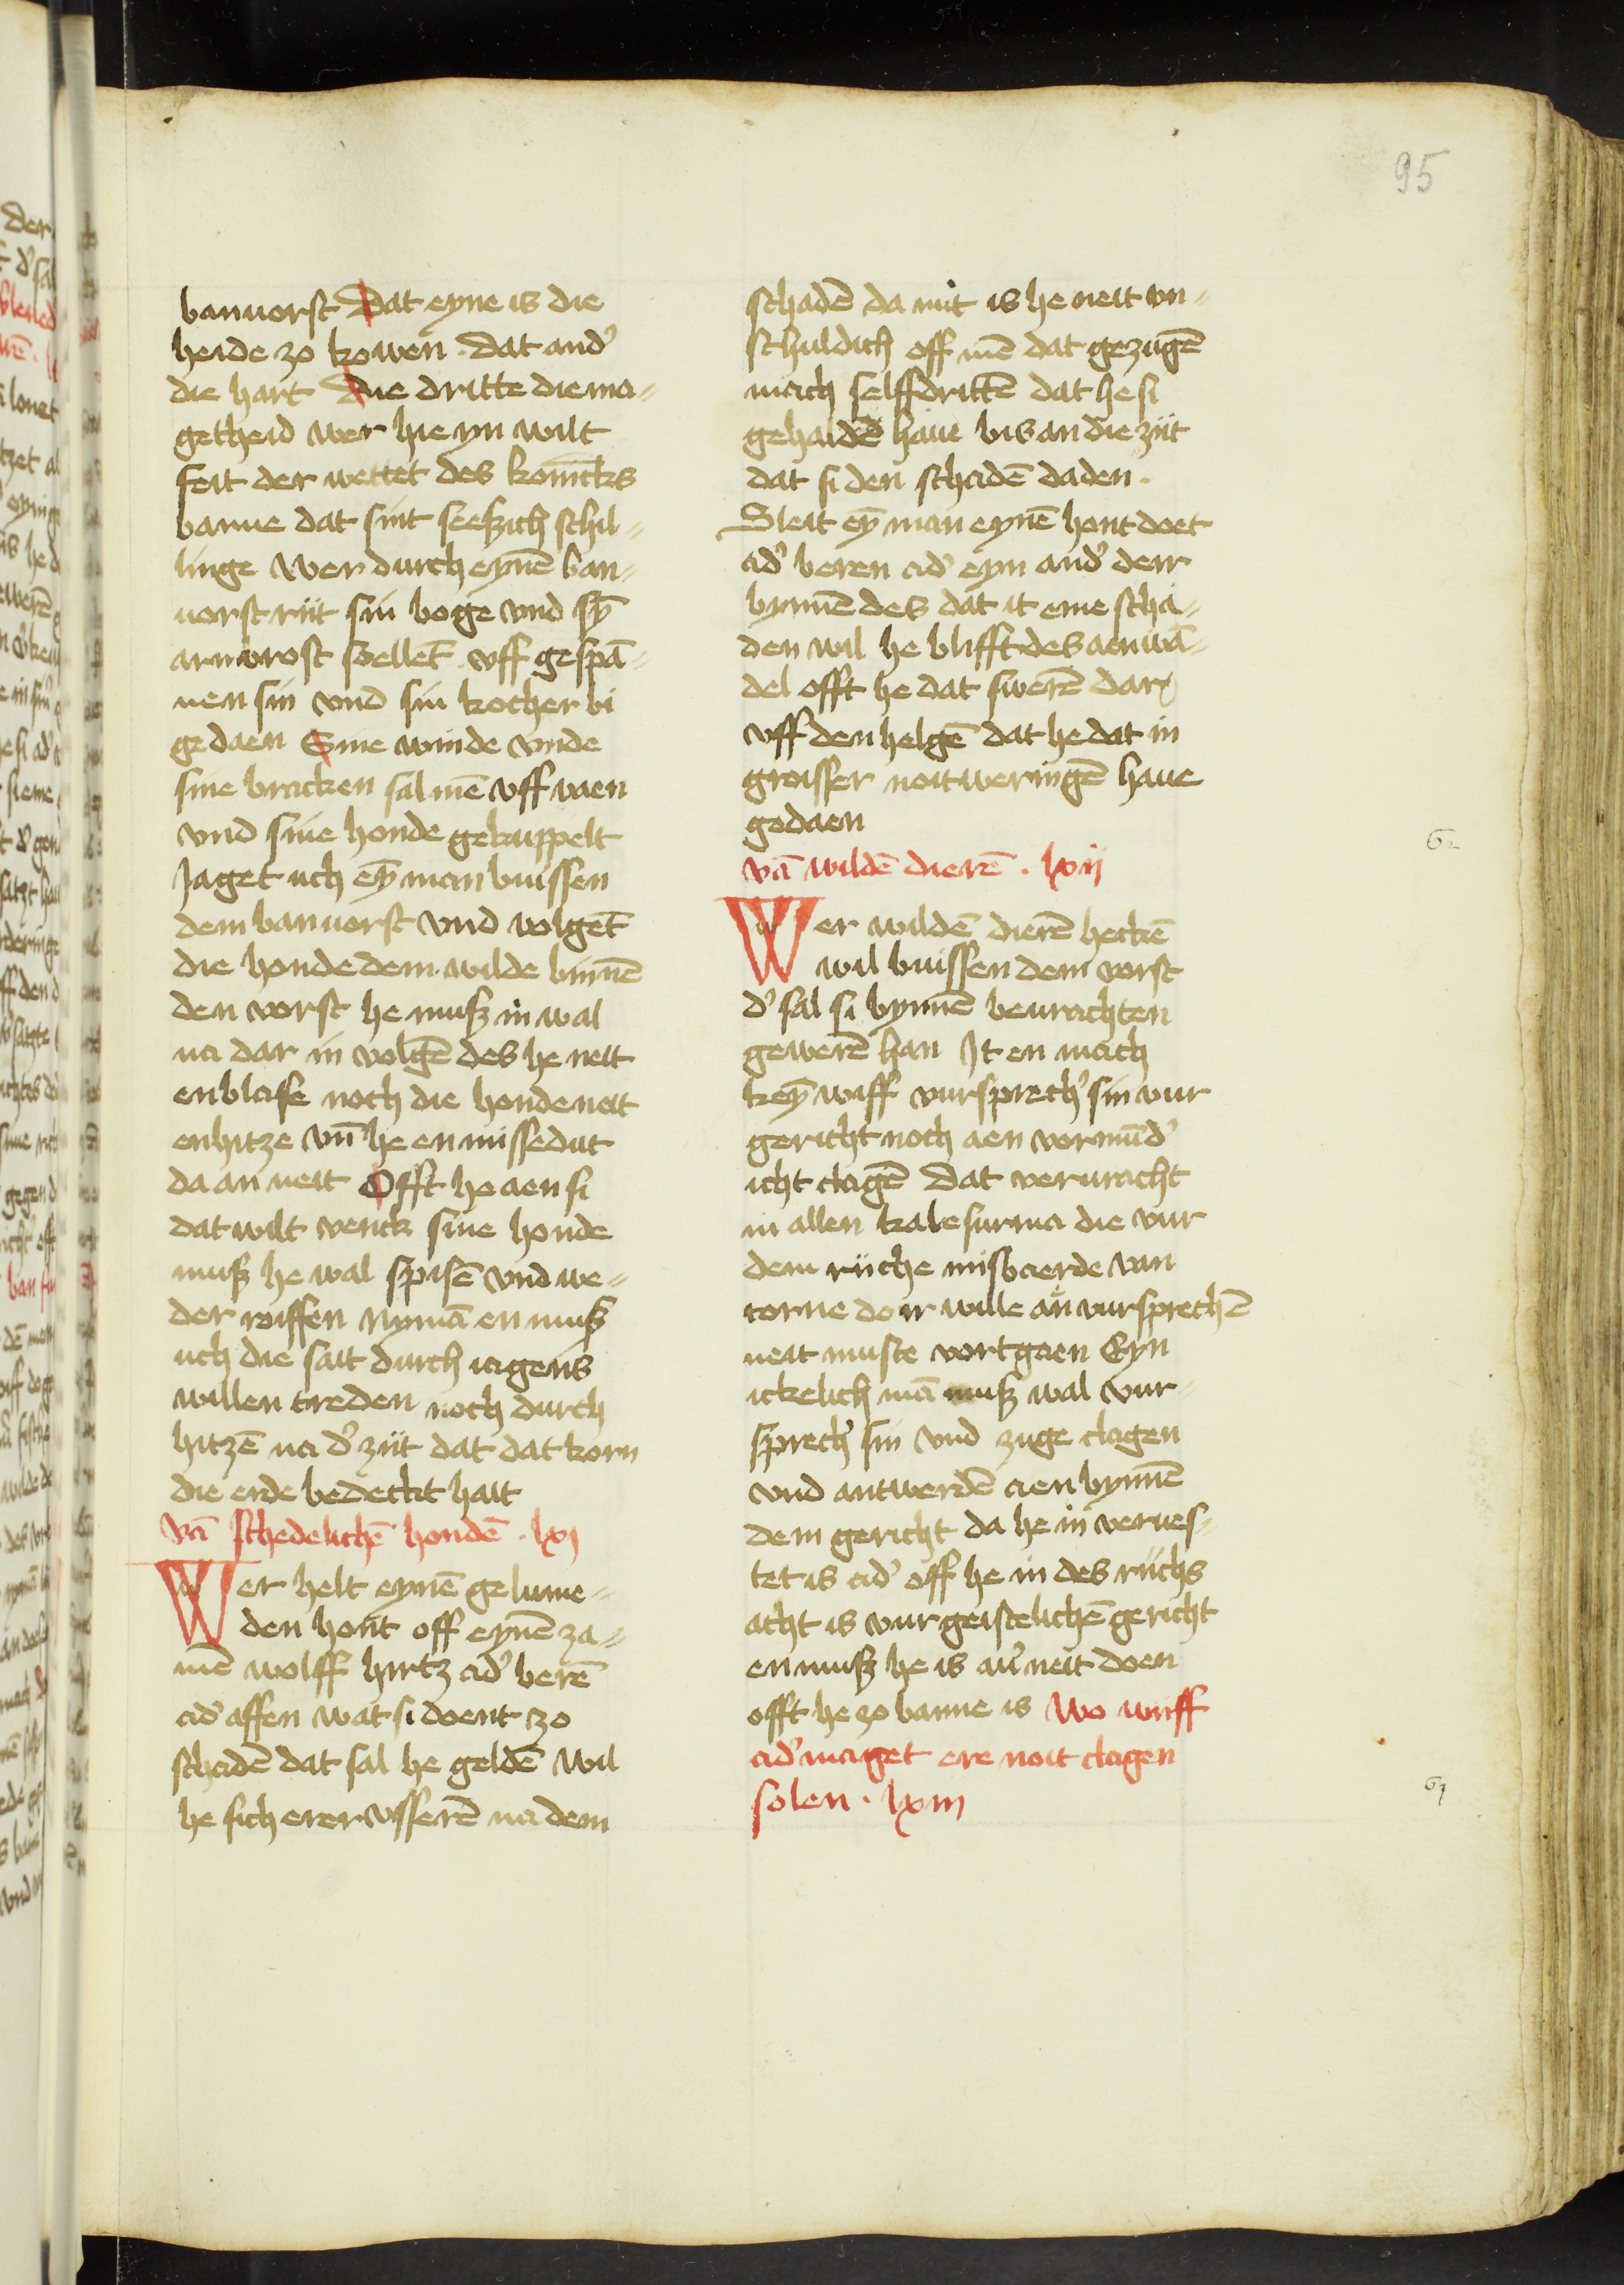 95
banuorst Dat eyne is die
heide zo kowen · dat and᷑
die hart Die dritte die ma⸗
getheid wer hie yn wilt
feit der wettet des konīcks
banne dat sint seeszich schil⸗
linge Wer durch eynē ban⸗
uorst riit sin boge vnd sȳ
armbrost sȯellēt vff gespā⸗
nen sin vnd sin kocher bi
gedaen Sine winde vnde
sine bracken sal mē vff vaen
vnd sine honde gekuppelt
Jaget ich eȳ man buissen
dem banuorst vnd volgēt
die honde dem wilde binnē
den vorst he musz in wal
na dar in volgē des he neit
enblase noch die honde neit
enhitze vn̄ he en missedut
da an neit Offt he aen si
dat wilt venck sine honde
musz he wal spisē vnd we⸗
der roiffen Nymā en musz
ich die sait durch iagens
willen treden noch durch
hitzē na d᷑ ziit dat dat korn
die erde bedeckt hait
vā schedelichē hondē · lxj
Wer helt eynē gelume⸗
den hont off eynē za⸗
mē wolff hirtz ad᷑ berē
ad᷑ affen wat si doent zo
schadē dat sal he geldē wil
he sich erer vsserē na dem
schadē da mit is he neit vn⸗
schuldich off mē dat gezugē
mach selffdrittē dat he si
gehaldē haue bis an die ziit
dat si den schadē daden ·
Sleit eȳ man eynē hont doet
ad᷑ beren ad᷑ eyn and᷑ deir
bynnē des dat it eme scha⸗
den wil he blifft des aen wā⸗
del offt he dat swerē dar
vff den helgē dat he dat in
groisser noitweringē haue
gedaen
62
vā wildē dierē · lxij
Wer wildē dierē heckē
wil buissen dem vorst
d᷑ sal si bynnē bewrachten
gewerē han It en mach
keȳ wiff vursprech᷑ sin vur
gericht noch aen vormūd᷑
icht clagē dat veruracht
in allen kalefurnia die vur
dem riiche misbaerde van
torne do ir wille an̄ vursprechē
neit muste vortgaen Eyn
ickelich mā musz wal vur⸗
sprech᷑ sin vnd zuge clagen
vnd antwerdē aen bynnē
dem gericht da he in verues⸗
tet is ad᷑ off he in des riichs
acht is vur geistelichē gericht
en musz he is au᷑ neit doen
offt he zo banne is Wo wiff
ad᷑ maget ere noit clagen
solen · lxiij
63